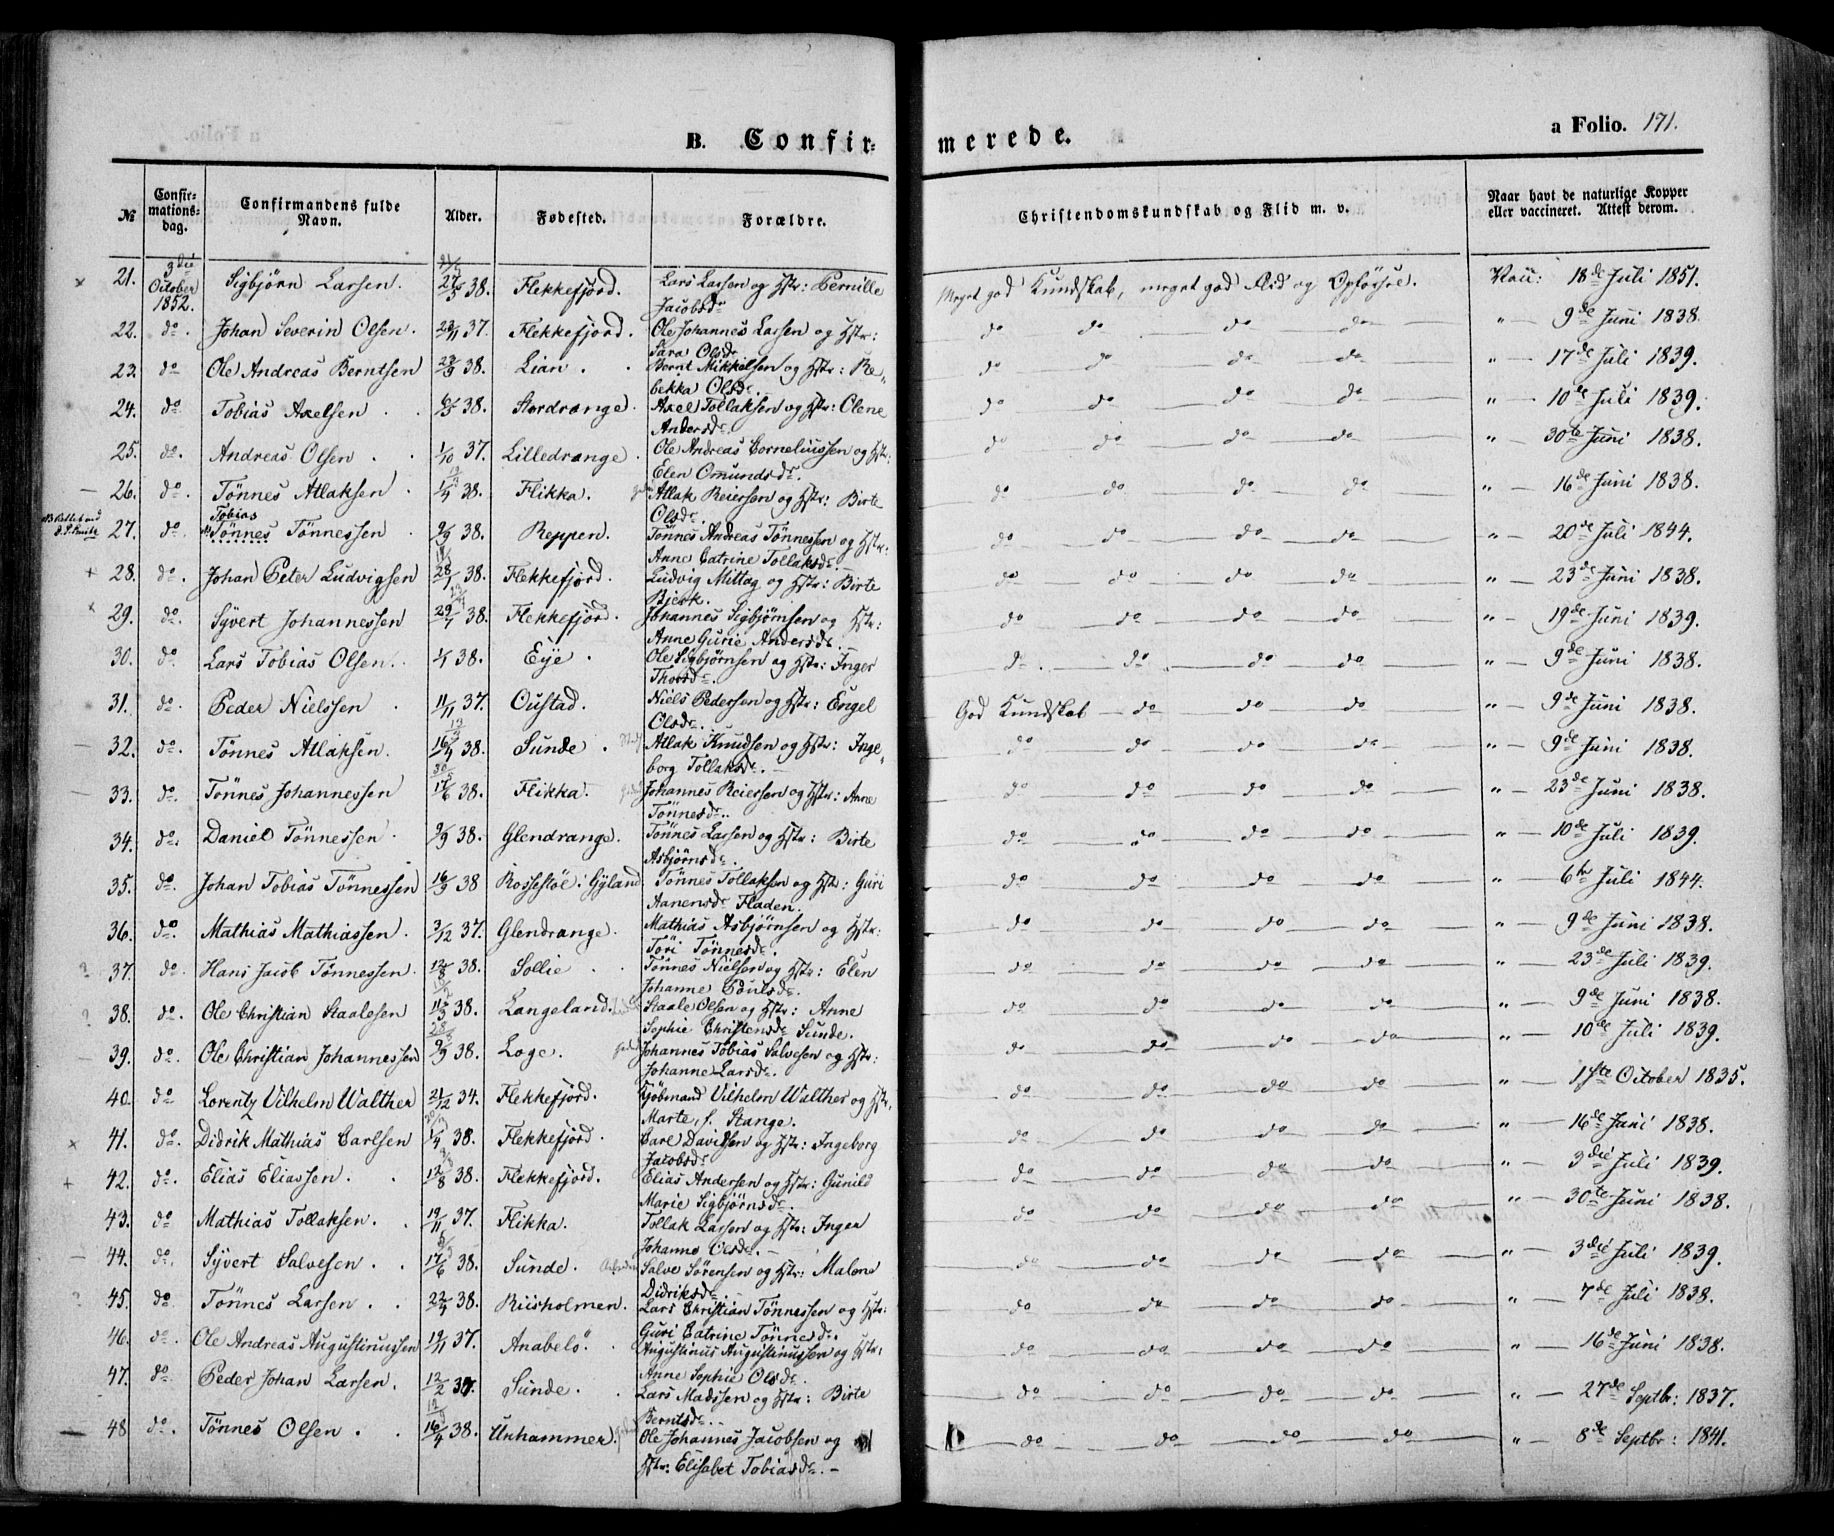 B. Confir-
merede.
a Folio. 171.
No
Confir-
mations-
dag.
Confirmandens fulde
Navn.
Alder.
Fødested.
Forældre.
Christendomskundskab og Flid m. v.
Naar havt de naturlige Kopper
eller vaccineret. Attest derom.
21. 3die October 1852. Sigbjørn Larsen. 27/5 38. Flekkefjord. Lars Larsen og Hstr: Pernille Jacobsdr Meget god Kundskab, meget god Flid og Opførsel. Vacc: 18de Juli 1851.
22. do. Johan Severin Olsen. 23/11 37. Flekkefjord. Ole Johannes Larsen og Hstr: Sara Olsdr. do do do do " 9de Juni 1838.
23. do Ole Andreas Berntsen 38. Lian. Bernt Mikkelsen og Hstr: Rebekka Olsdr. do do do do " 17de Juli 1839.
24. do. Tobias Axelsen 38. Stordrange. Axel Tollaksen og Hstr: Olene Andersdr. do do do do " 10de Juli 1839.
25. do. Andreas Olsen 1/10 37. Lilledrange. Ole Andreas Corneliussen og Hstr: Elen Omundsdr. do do do do " 30te Juni 1838.
26. do. Tønnes Atlaksen 38. Flikka. Atlak Reiersen og Hstr: Birte Olsdr. do do do do " 16de Juni 1838.
27. do. Tobias Tønnes Tønnessen 9/9 38. Reppen. Tønnes Andreas Tønnessen og Hstr: Anne Catrine Tollaksdr. do do do do " 20de Juli 1844.
28. do. Johan Peter Ludvigsen 28/1 38. Flekkefjord. Ludvig Mittag og Hstr: Birte Bjerk. do do do do " 23de Juni 1838.
29. do. Syvert Johannessen 29/7 38. Flekkefjord. Johannes Sigbjørnsen og Hstr: Anne Gurie Andersdr. do do do do " 19de Juni 1839.
30. do. Lars Tobias Olsen. 38. Eye. Ole Sigbjørnsen og Hstr: Inger Thorsdr. do do do do " 9de Juni 1838.
31. do. Peder Nielssen 11/11 37. Oustad. Niels Pedersen og Hstr: Engel Olsdr. God Kundskab do do do " 9de Juni 1838.
32. do. Tønnes Atlaksen. 16/4 38. Sunde. Atlak Knudsen og Hstr: Ingeborg Tollaksdr. do do do do " 9de Juni 1838.
33. do. Tønnes Johannessen 17/6 38. Flikka. Johannes Reiersen og Hstr: Anne Tønnesdr. do do do do " 23de Juni 1838.
34. do. Daniel Tønnessen 9/9 38. Glendrange. Tønnes Larsen og Hstr: Birte Asbjørnsdr. do do do do " 10de Juli 1839.
35. do. Johan Tobias Tønnessen 16/9 38 Rossestøl i Gyland Tønnes Tollaksen og Hstr: Guri Aanensdr Fladen. do do do do " 6te Juli 1844.
36. do. Mathias Mathiassen. 3/12 37. Glendrange. Mathias Asbjørnsen og Hstr: Tori Tønnesdr. do do do do " 9de Juni 1838.
37. do. Hans Jacob Tønnessen. 12/8 38. Sollie. Tønnes Nielsen og Hstr: Elen Johanne Edvisdr. do do do do " 23de Juli 1839.
38. do. Ole Christian Staalesen 38. Langeland. Staale Olsen og Hstr: Anne Sophie Christensdr Sunde. do do do do " 9de Juni 1838.
39. do. Ole Christian Johannessen 9/9 38. Loge. Johannes Tobias Salvesen og Hstr: Johanne Larsdr. do do do do " 10de Juli 1839.
40. do Lorentz Vilhelm Walther 21/12 34. Flekkefjord. Kjøbmand Vilhelm Walther og Hstr. Marte, f. Stange. do do do do " 1ste October 1835.
41. do. Didrik Mathias Carlsen 1/4 38. Flekkefjord. Carl Davidsen og Hstr: Ingeborg Jacobsdr. do do do do " 16de Juni 1838.
42. do. Elias Eliassen. 12/8 38. Flekkefjord. Elias Andersen og Hstr: Gunild Marie Sigbjørnsdr. do do do do " 3die Juli 1839.
43. do Mathias Tollaksen. 19/11 37. Flikka. Tollak Larsen og Hstr: Inger Johanne Olsdr. do do do do " 30te Juni 1838.
44. do. Syvert Salvesen 17/6 38. Sunde. Salve Sørensen og Hstr: Malene Didriksdr. do do do do " 3die Juli 1839.
45. do Tønnes Larsen. 22/4 38. Riisholmen. Lars Christian Tønnessen og Hstr: Guri Catrine Tønnesdr. do do do do " 7de Juli 1838.
46. do. Ole Andreas Augustinussen 19/11 37. Anabelø. Augustinus Augustinussen og Hstr: Anne Sophie Olsdr. do do do do " 16de Juni 1838.
47. do. Peder Johan Larsen. 12/2 37. Sunde. Lars Madssen og Hstr: Birte Berntsdr. do do do do " 27de Septbr: 1837.
48 do. Tønnes Olsen. 16/4 38. Unhammer. Ole Johannes Jacobsen og Hstr: Elisabet Tobiasdr. do do do do " 8de Septbr: 1841.